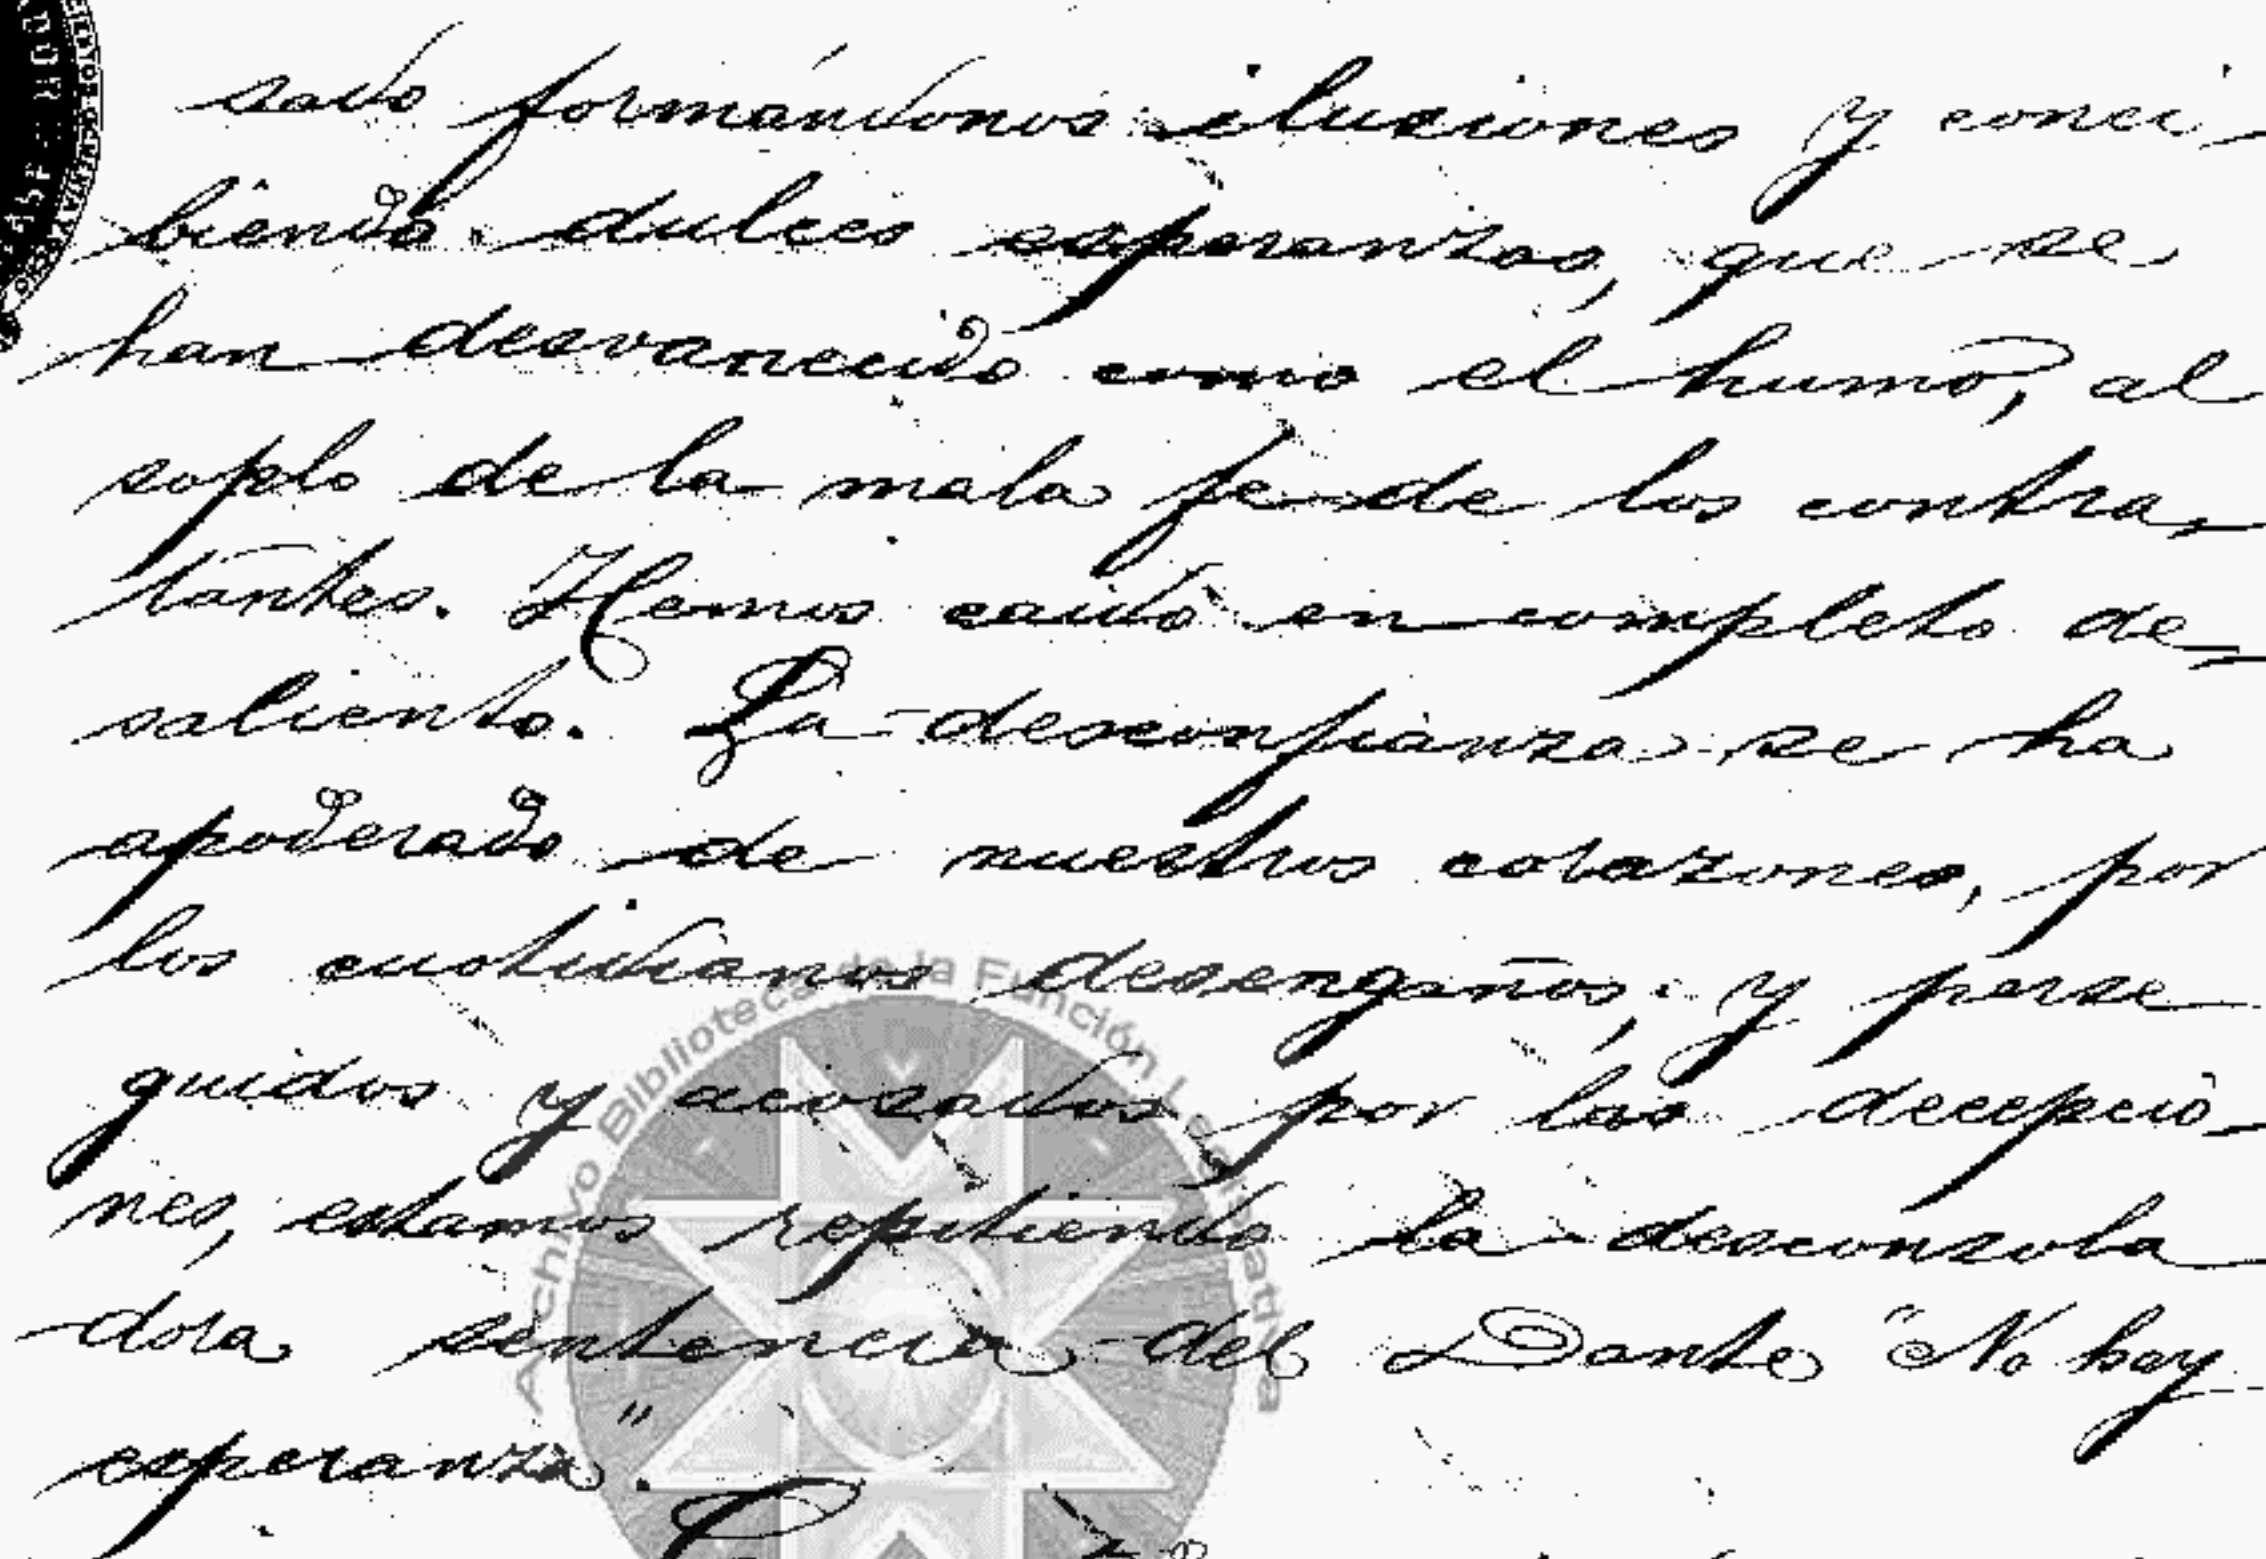 sado formándonos ilusiones y conci-
biendo dulces esperanzas, que se
han desvanecido como el humo, al
soplo de la mala fe de los contra-
tantes. Hemos caido en completo de-
saliento. La desconfianza se ha
apoderado de nuestros corazones, por
los cuotidianos desengaños, y perse
guidos y acosados por las decepcio-
nes, estamos repitiendo la desconsola
dora sentencia del Dante "No hay
esperanza".
Archivo Biblioteca de la Función Legislativa